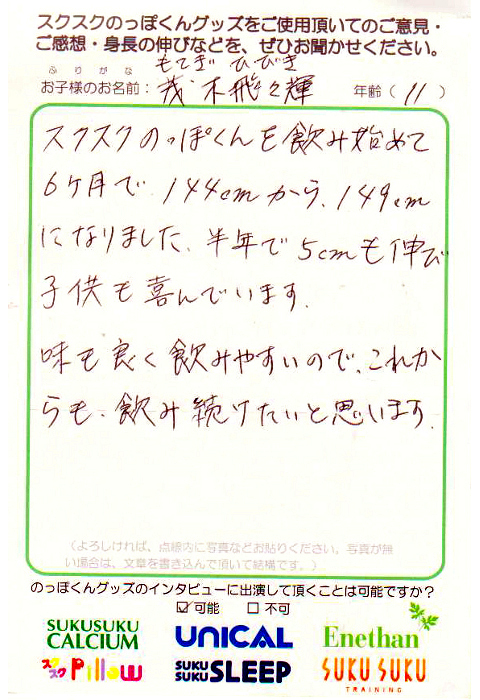 スクスクのっぽくんグッズをご使用頂いてのご意見・
ご感想・身長の伸びなどを、ぜひお聞かせください。
ふりがな もてぎ ひびき
お子様のお名前：茂木飛々輝 年齢（11）
スクスクのっぽくんを飲み始めて
6ヶ月で、144cmから、149cm
になりました、半年で5cmも伸び
子供も喜んでいます.
味も良く飲みやすいので、これか
らも、飲み続けたいと思います.
（よろしければ、点線内に写真などお貼りください。写真が無
い場合は、文章を書き込んで頂いて結構です。）
のっぽくんグッズのインタビューに出演して頂くことは可能ですか？
☑可能 □不可
SUKUSUKU CALCIUM UNICAL Enethan
スクスク Pillow SUKU SUKU SLEEP SUKU SUKU TRAINING